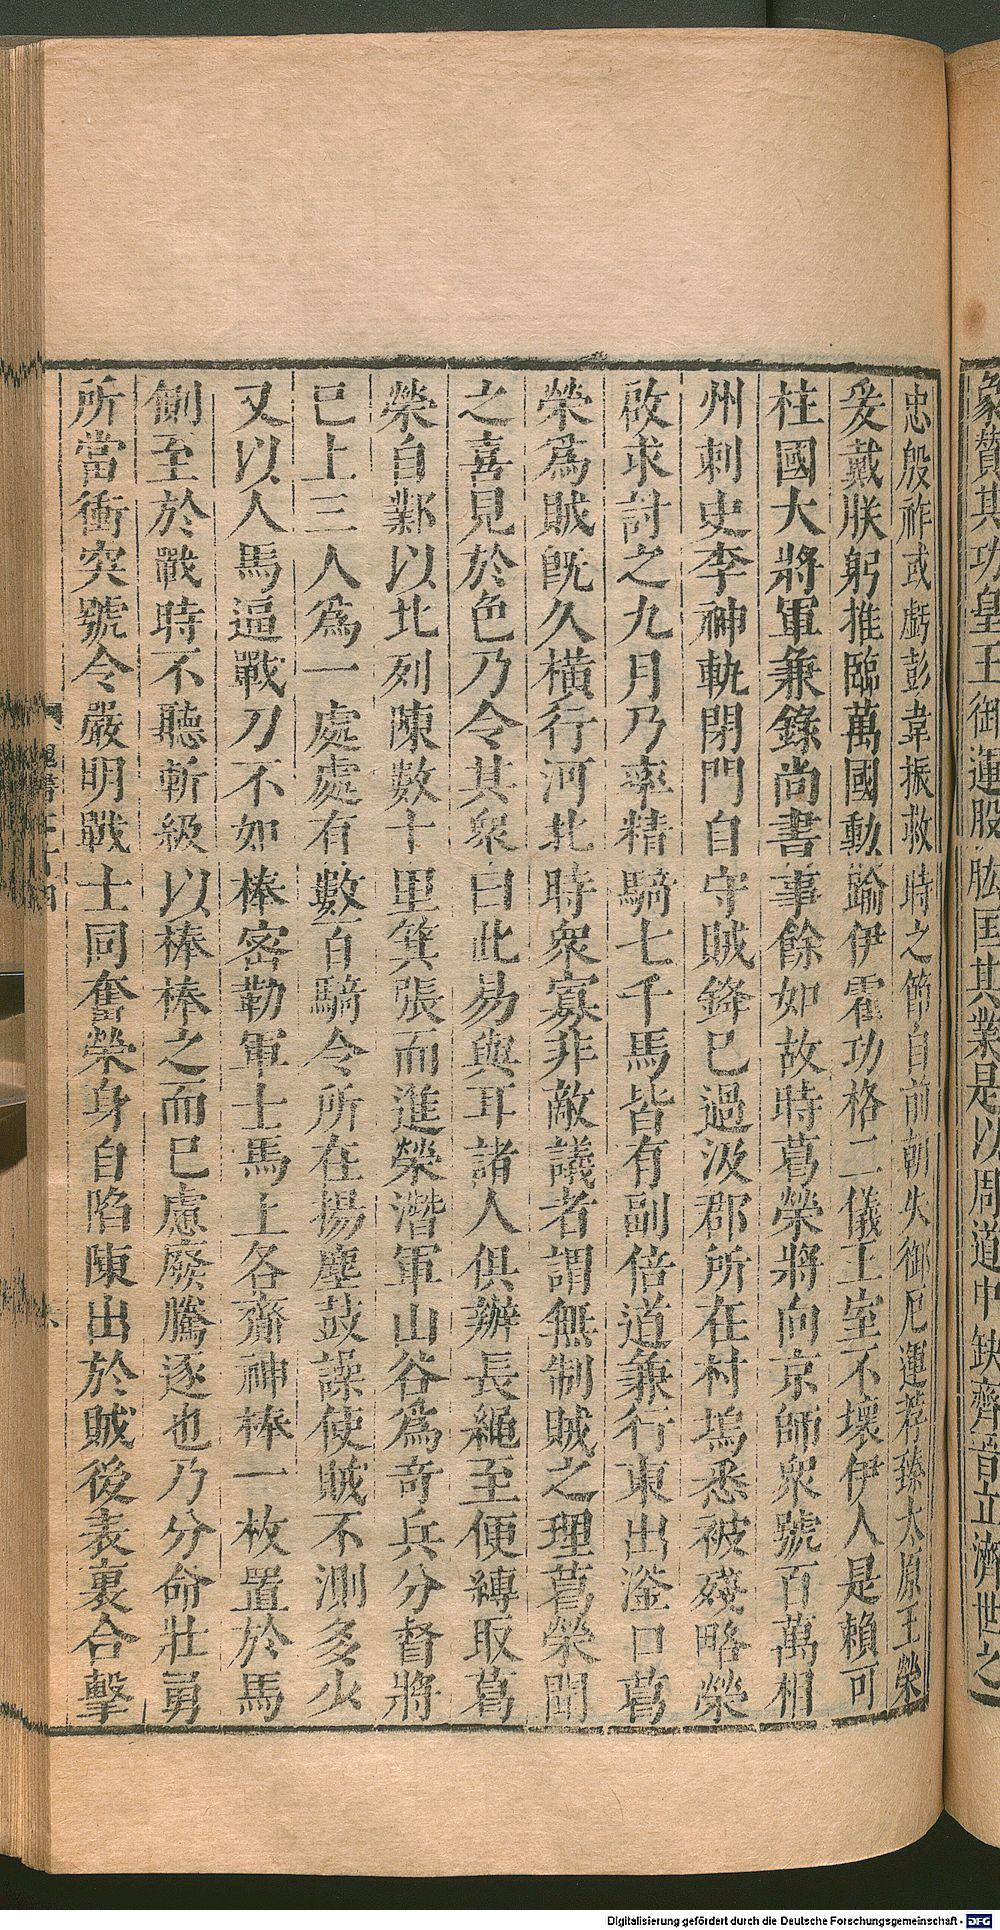 忠殷祚或虧彭韋振救時之節自前朝失御厄運荐臻太原王榮
爰戴朕躬推臨萬國勳踰伊霍功格二儀王室不壞伊人是賴可
柱國大將軍兼錄尚書事餘如故時葛榮將向京師衆號百萬相
州刺史李神軌閉門自守賊鋒已過汲郡所在村塢悉被殘略榮
啟求討之九月乃率精騎七千馬皆有副倍道兼行東出滏口葛
榮爲賊旣久橫行河北時衆寡非敵議者謂無制賊之理葛榮聞
之喜見於色乃令其衆曰此易與耳諸人俱辦長繩至便縛取葛
榮自鄴以北列陳數十里箕張而進榮潛軍山谷爲奇兵分督將
已上三人爲一處處有數百騎令所在揚塵鼓譟使賊不測多少
又以人馬逼戰刀不如棒密勒軍士馬上各齎神棒一枚置於馬
側至於戰時不聽斬級以棒棒之而已慮廢騰逐也乃分命壯勇
所當衝突號令嚴明戰士同奮榮身自陷陳出於賊後表裏合擊
象贊其功皇王御運股肱匡其業是以周道中缺齊晉立濟世之
Digitalisierung gefördert durch die Deutsche Forschungsgemeinschaft - DFG